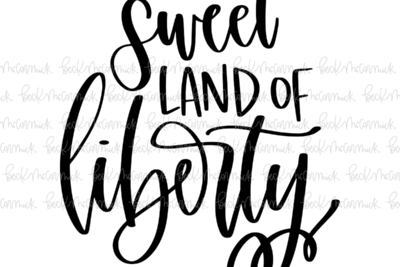 Sweet
LAND OF
liberty